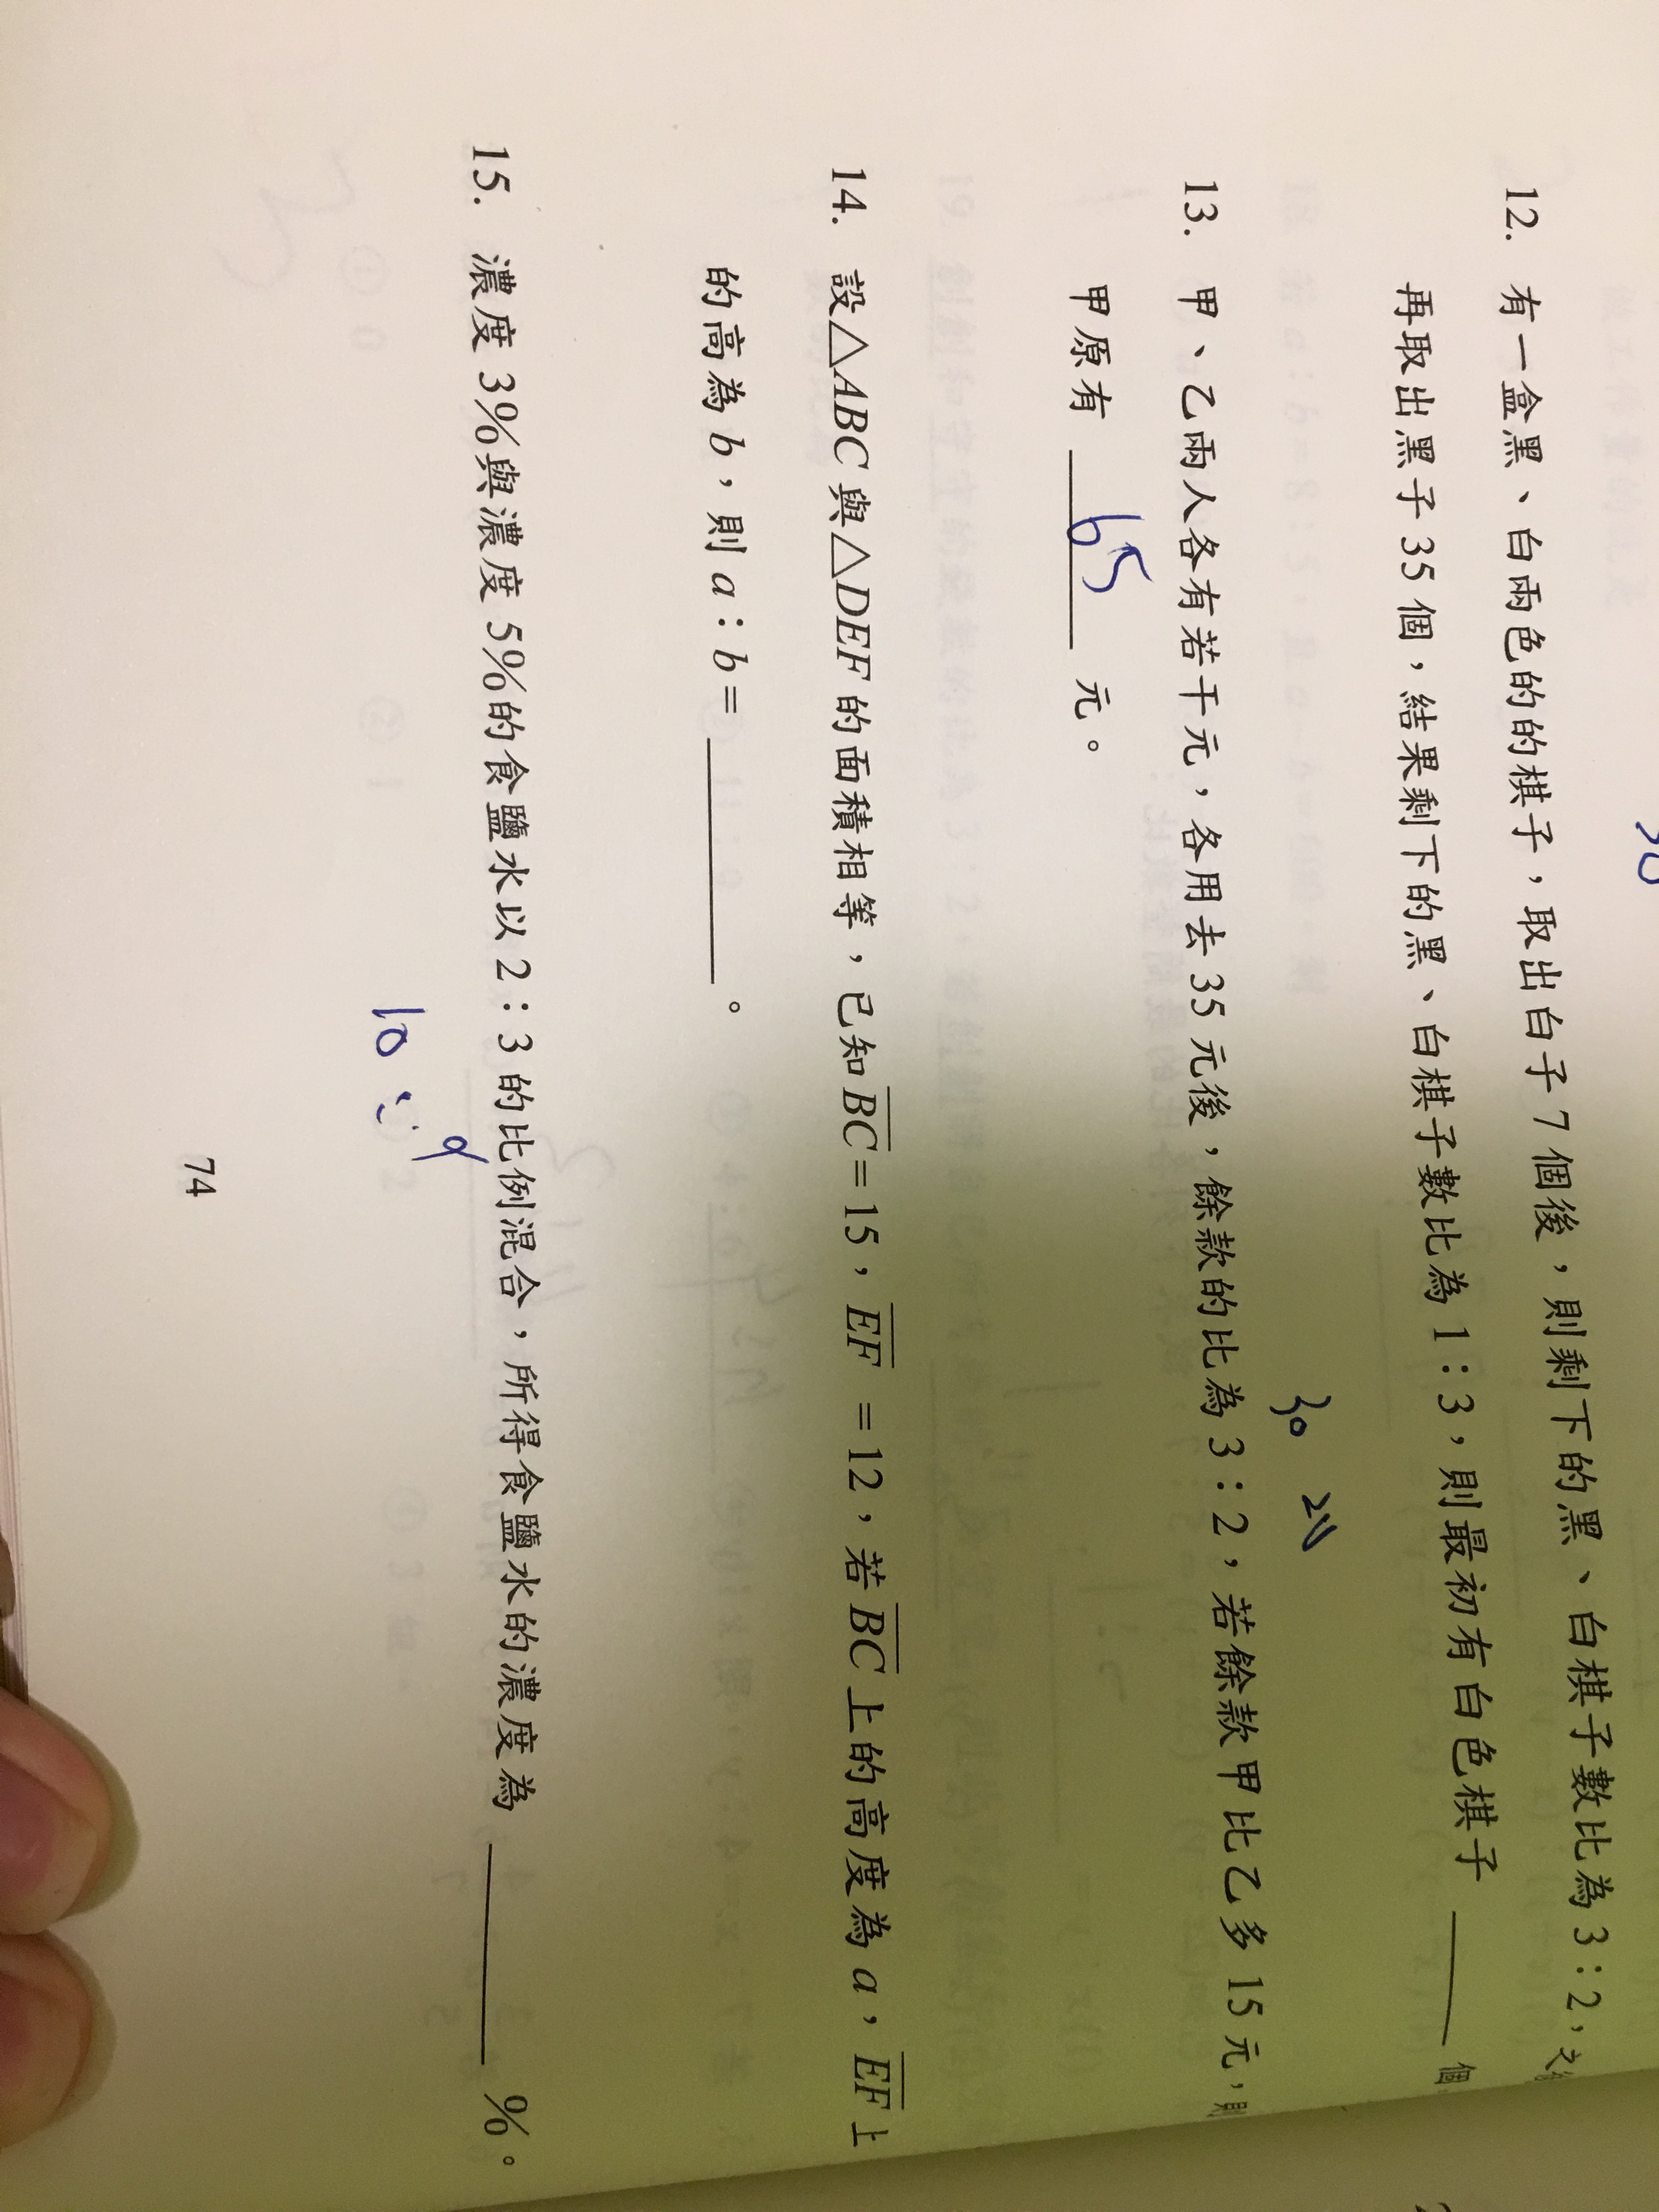 12. 有一盒黑、白兩色的的棋子，取出白子7個後，則剩下的黑、白棋子數比為3：2，之後
再取出黑子35個，結果剩下的黑、白棋子數比為1：3，則最初有白色棋子______個
30 20
13. 甲、乙兩人各有若干元，各用去35元後，餘款的比為3：2，若餘款甲比乙多15元，則
甲原有 65 元。
14. 設△ABC與△DEF的面積相等，已知BC=15，EF=12，若BC上的高度為a，EF上
的高為b，則a：b=______。
15. 濃度3%與濃度5%的食鹽水以2：3的比例混合，所得食鹽水的濃度為______%。
10 : 9
74